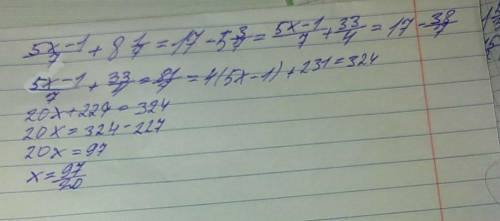 5x-1/7 + 8 1/4 = 17 - 5 3/7 = 5x-1/7 + 33/4 = 17 - 38/7
5x-1/7 + 33/4 = 81/7 = 4(5x-1) + 231 = 324
20x + 227 = 324
20x = 324 - 227
20x = 97
x = 97/20